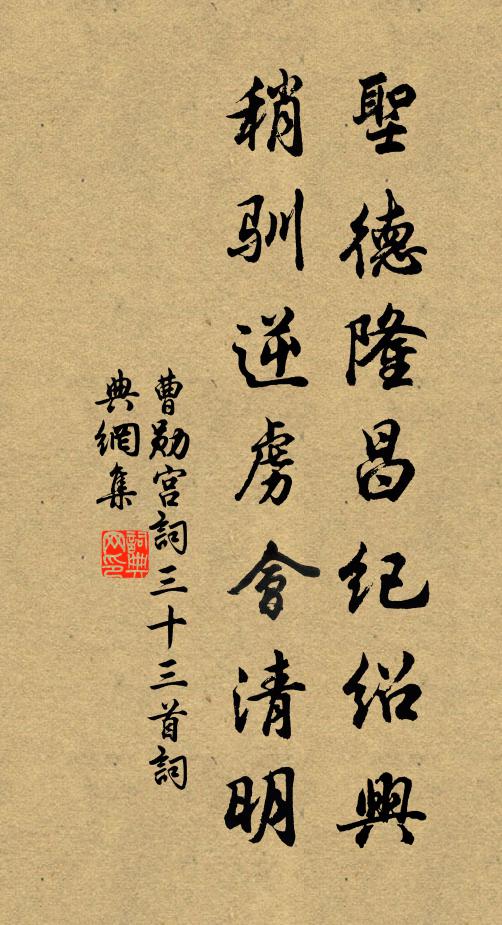 聖德隆昌紀紹興
稍馴逆虜會清明
曹勛宮詞三十三首詞
典網集
詞典網印